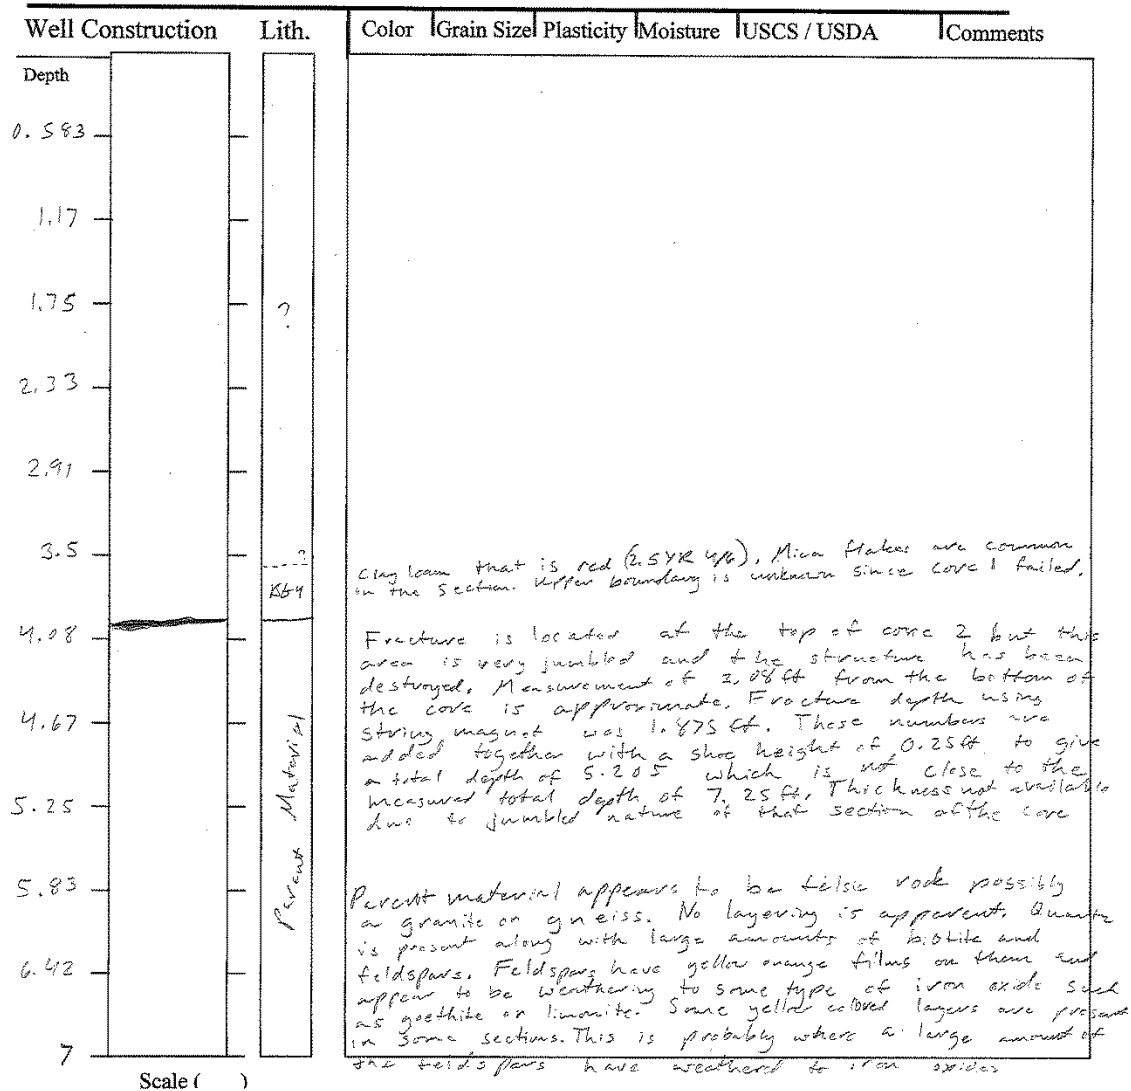 Well Construction Lith. Color Grain Size Plasticity Moisture USCS / USDA Comments
Depth
0.583
1.17
1.75
?
2.33
2.91
3.5
?
Clay loam that is red (2.5YR 4/6). Mica flakes are common
in the section. Upper boundary is unknown since core 1 failed.
4.08
Fracture is located at the top of core 2 but this
area is very jumbled and the structure has been
destroyed. Measurement of 3.08ft from the bottom of
the core is approximate. Fracture depth using
4.67
string magnet was 1.875 ft. These numbers are
added together with a shoe height of 0.25ft to give
a total depth of 5.205 which is not close to the
5.25
measured total depth of 7.25ft. Thickness not available
due to jumbled nature of that section of the core
Parent Material
5.83
Parent material appears to be felsic rock possibly
a granite or gneiss. No layering is apparent. Quartz
is present along with large amounts of biotite and
6.42
feldspars. Feldspars have yellow orange films on them and
appear to be weathering to some type of iron oxide such
as goethite or limonite. Some yellow colored layers are present
in some sections. This is probably where a large amount of
7
the feldspars have weathered to iron oxides
Scale ( )